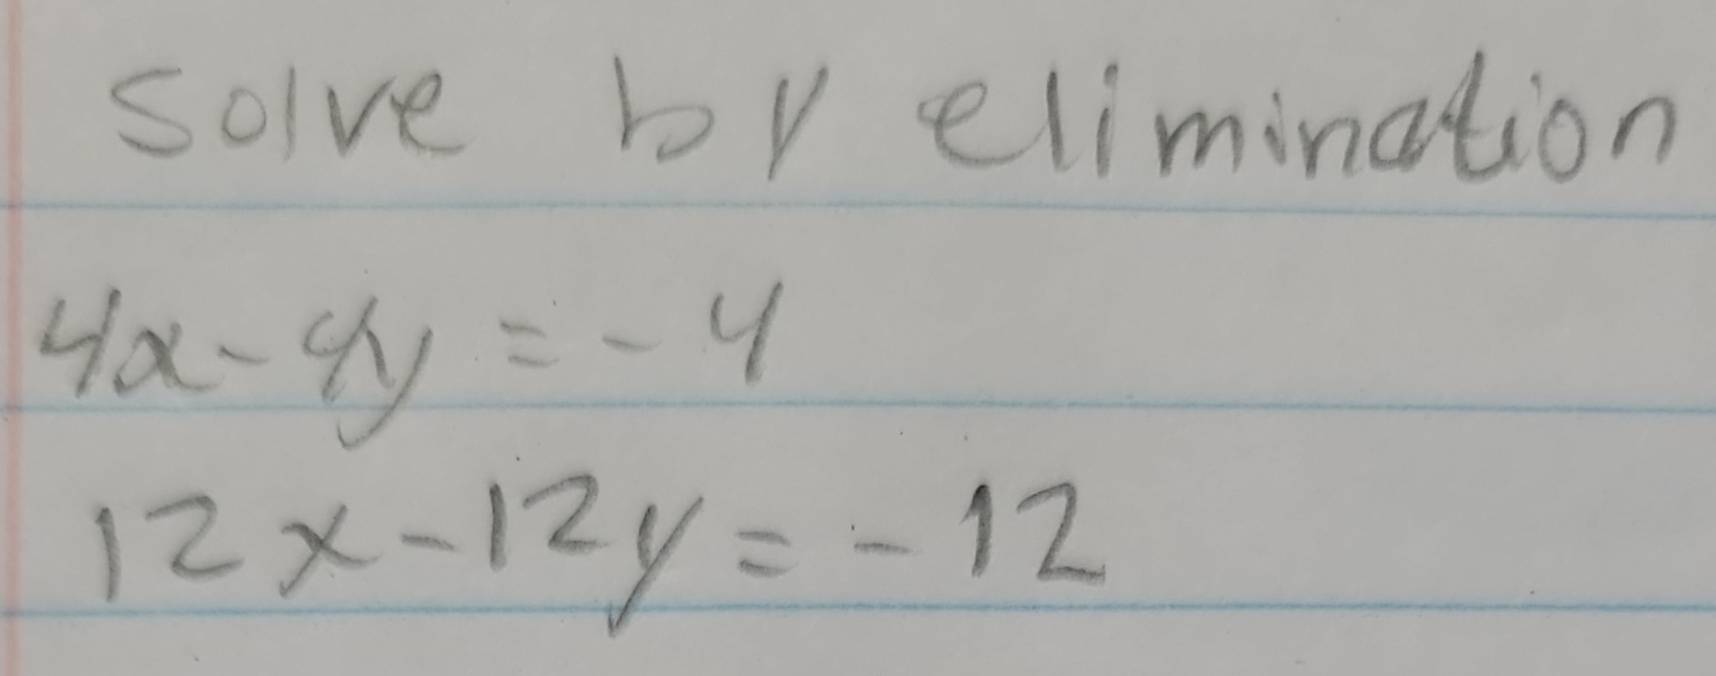 solve by elimination
4x - 4y = - 4
12x - 12y = - 12